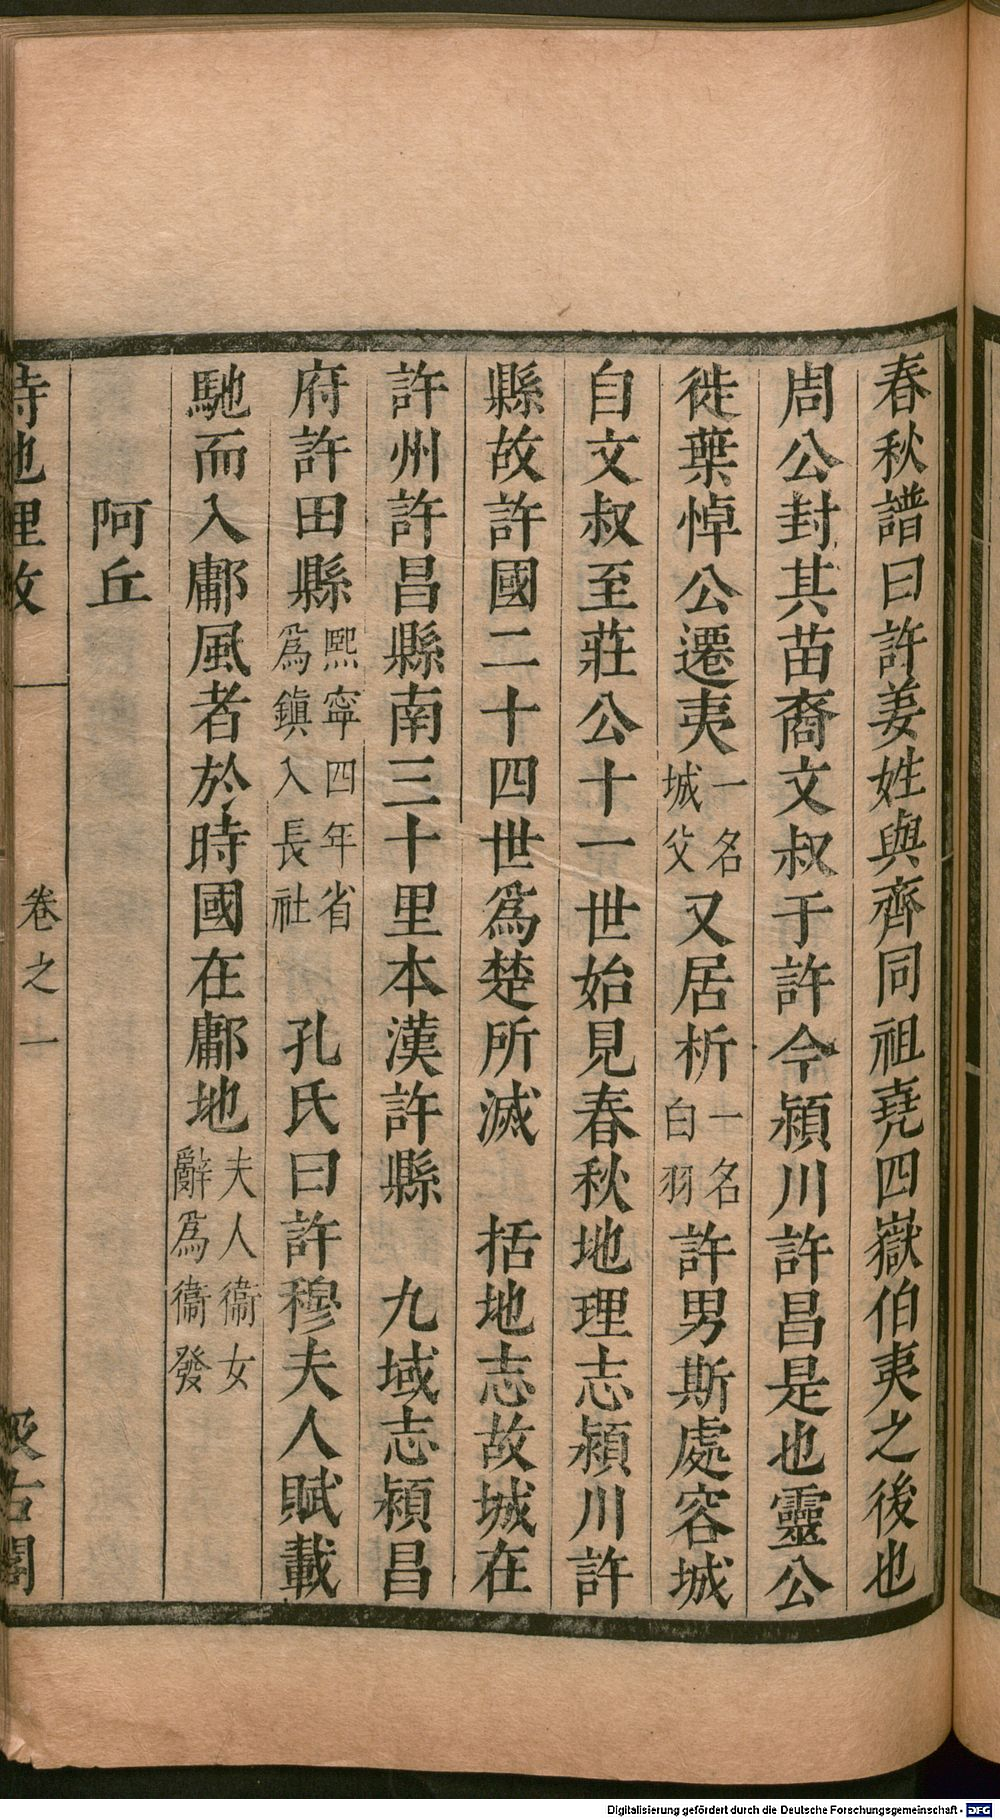 春秋譜曰許姜姓與齊同祖堯四嶽伯夷之後也
周公封其苗裔文叔于許今潁川許昌是也靈公
徙葉悼公遷夷一名城父又居析一名白羽許男斯處容城
自文叔至莊公十一世始見春秋地理志潁川許
縣故許國二十四世爲楚所滅 括地志故城在
許州許昌縣南三十里本漢許縣 九域志潁昌
府許田縣熙寧四年省爲鎮入長社 孔氏曰許穆夫人賦載
馳而入鄘風者於時國在鄘地夫人衞女辭爲衞發
阿丘
詩地理攷 卷之一 汲古閣
Digitalisierung gefördert durch die Deutsche Forschungsgemeinschaft - DFG